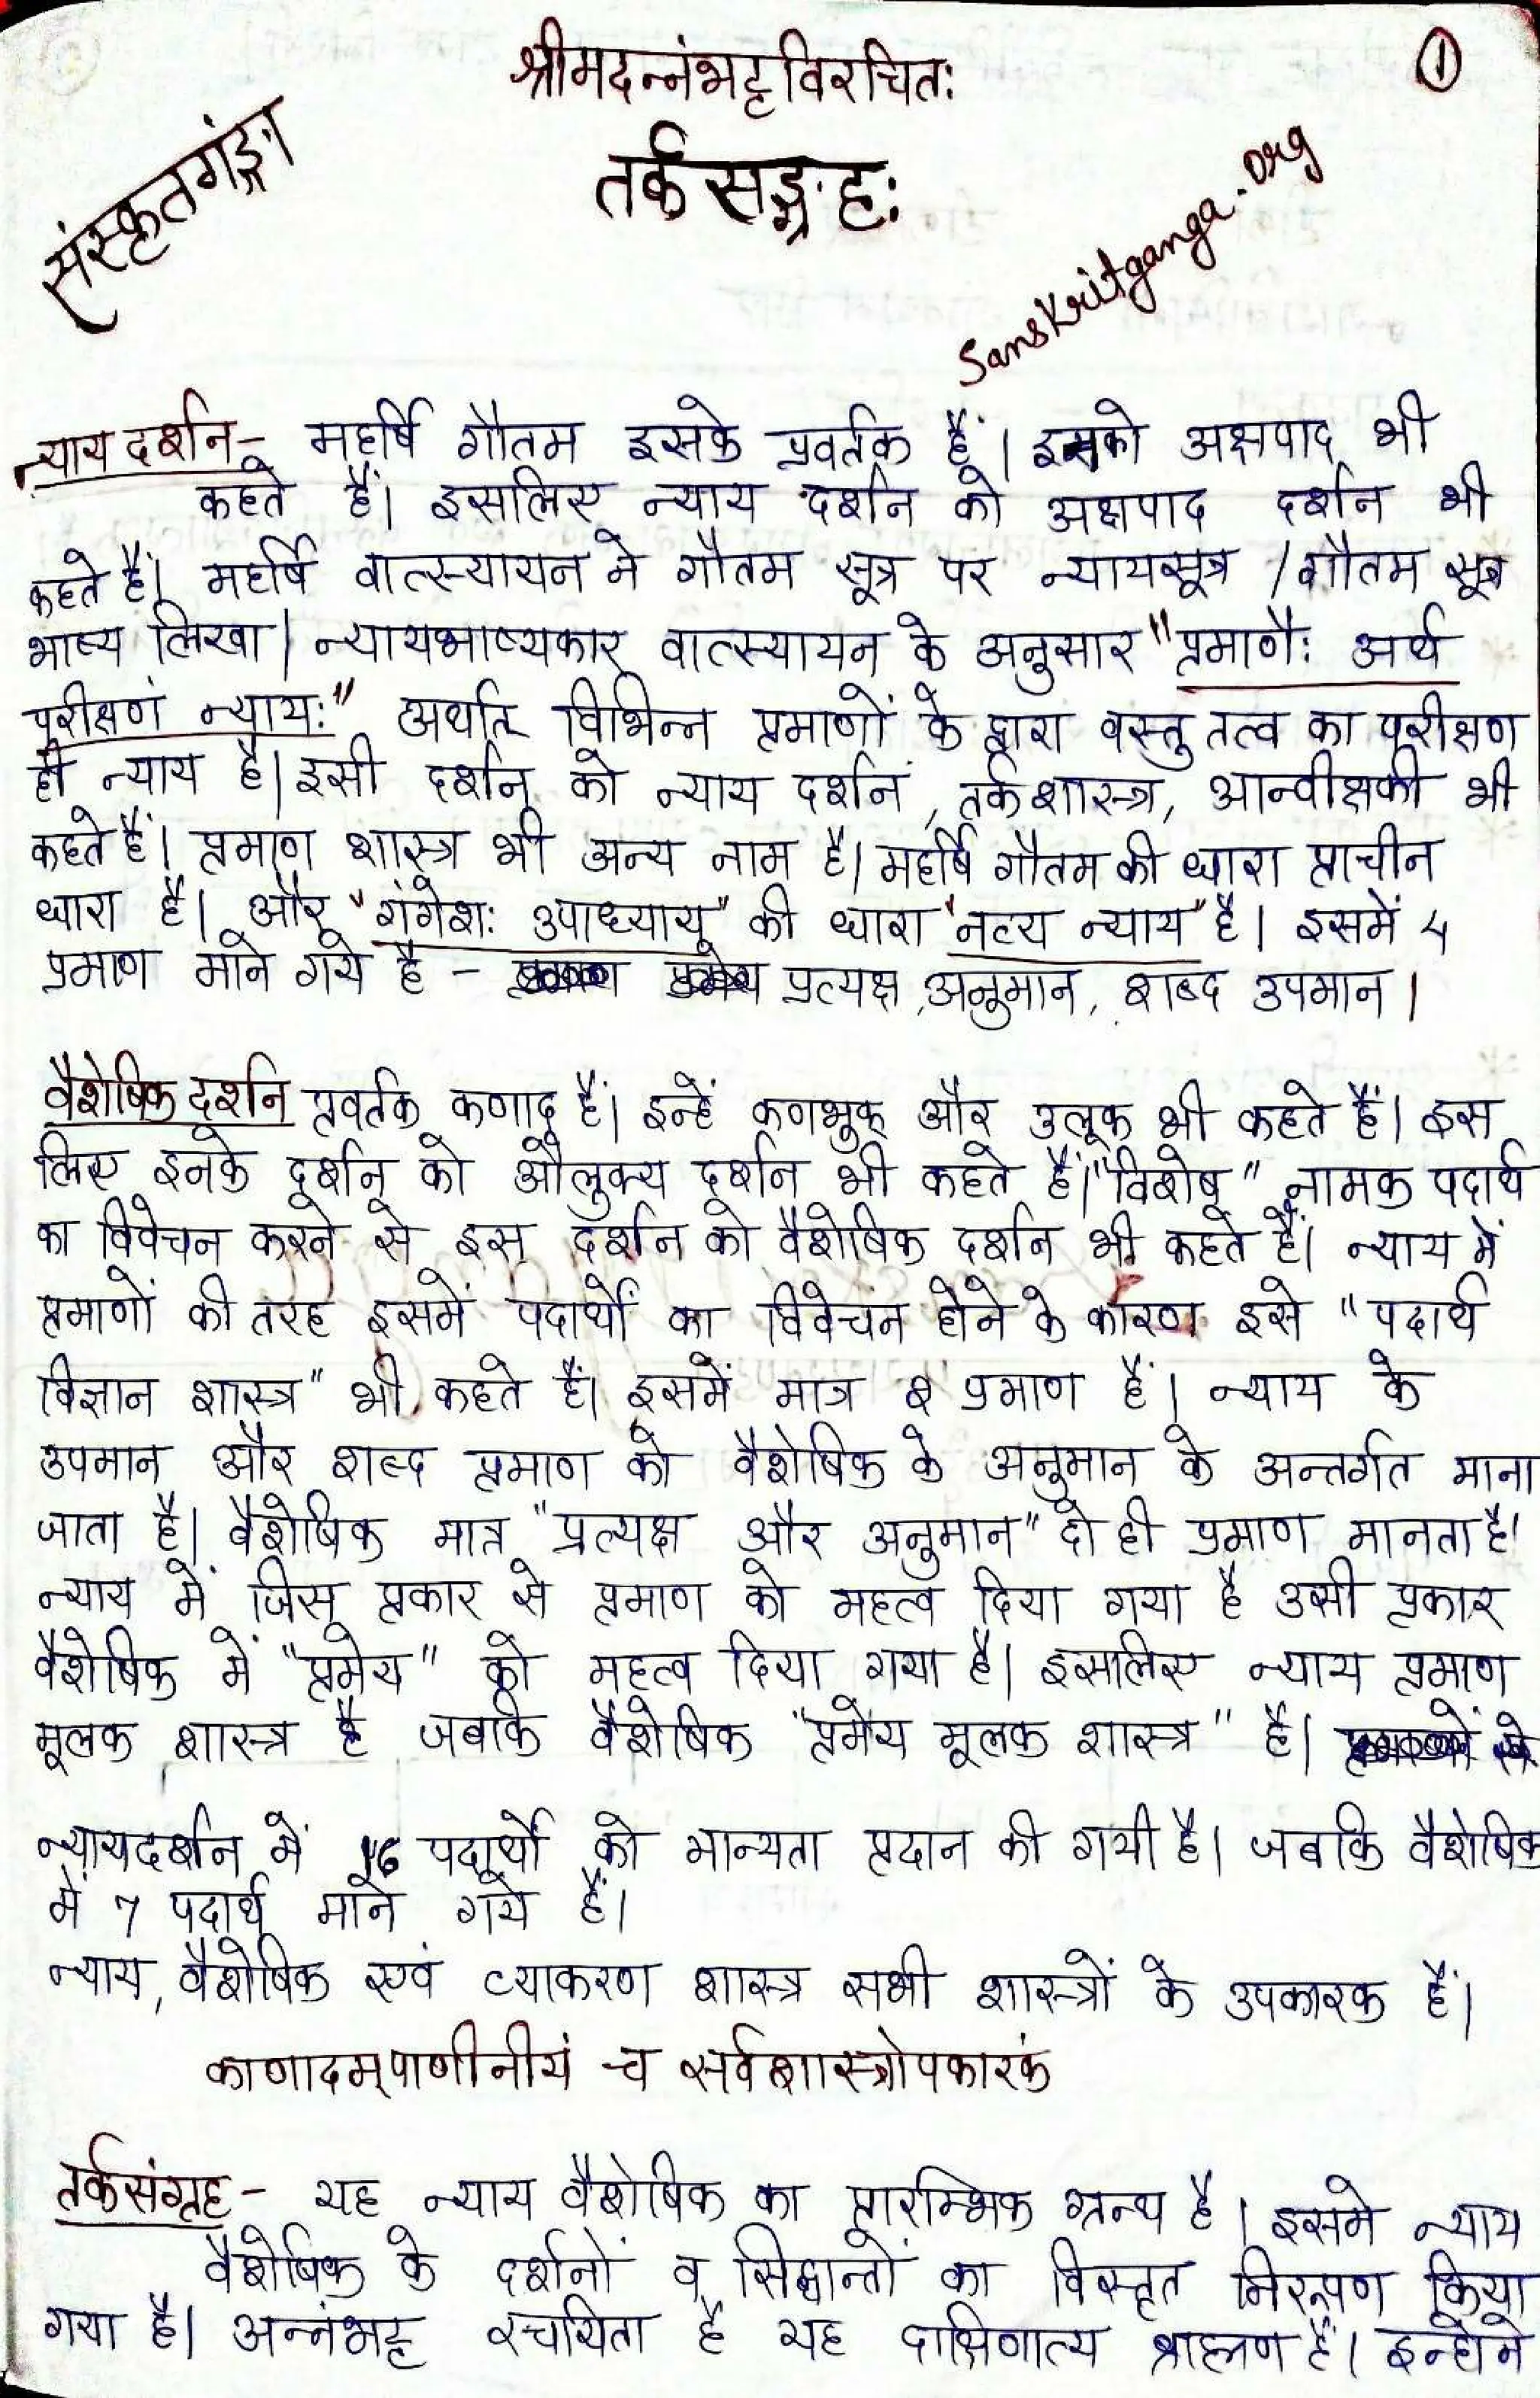 श्रीमदन्नंभट्टविरचितः
①
तर्कसङ्ग्रहः
संस्कृतगंङ्गा
Sanskritganga.org
न्याय दर्शन - महर्षि गौतम इसके प्रवर्तक हैं। इनको अक्षपाद भी
कहते हैं। इसलिए न्याय दर्शन को अक्षपाद दर्शन भी
कहते हैं। महर्षि वात्स्यायन ने गौतम सूत्र पर न्यायसूत्र / गौतम सूत्र
भाष्य लिखा। न्यायभाष्यकार वात्स्यायन के अनुसार "प्रमाणैः अर्थ
परीक्षणं न्यायः" अर्थात् विभिन्न प्रमाणों के द्वारा वस्तु तत्व का परीक्षण
ही न्याय है। इसी दर्शन को न्याय दर्शन, तर्कशास्त्र, आन्वीक्षकी भी
कहते हैं। प्रमाण शास्त्र भी अन्य नाम है। महर्षि गौतम की धारा प्राचीन
धारा है। और "गंगेशः उपाध्याय" की धारा "नव्य न्याय" है। इसमें 4
प्रमाण माने गये है - प्रत्यक्ष, अनुमान, शब्द उपमान।
वैशेषिक दर्शन प्रवर्तक कणाद हैं। इन्हें कणभुक् और उलूक भी कहते हैं। इस
लिए इनके दर्शन को औलुक्य दर्शन भी कहते हैं। "विशेष" नामक पदार्थ
का विवेचन करने से इस दर्शन को वैशेषिक दर्शन भी कहते हैं। न्याय में
प्रमाणों की तरह इसमें पदार्थों का विवेचन होने के कारण इसे "पदार्थ
विज्ञान शास्त्र" भी कहते हैं। इसमें मात्र 2 प्रमाण हैं। न्याय के
उपमान और शब्द प्रमाण को वैशेषिक के अनुमान के अन्तर्गत माना
जाता है। वैशेषिक मात्र "प्रत्यक्ष और अनुमान" दो ही प्रमाण मानता है।
न्याय में जिस प्रकार से प्रमाण को महत्व दिया गया है उसी प्रकार
वैशेषिक में "प्रमेय" को महत्व दिया गया है। इसलिए न्याय प्रमाण
मूलक शास्त्र है जबकि वैशेषिक "प्रमेय मूलक शास्त्र" है।
न्यायदर्शन में 16 पदार्थो को मान्यता प्रदान की गयी है। जबकि वैशेषिक
में 7 पदार्थ माने गये हैं।
न्याय, वैशेषिक एवं व्याकरण शास्त्र सभी शास्त्रों के उपकारक हैं।
काणादम्पाणीनीयं च सर्वशास्त्रोपकारकं
तर्कसंग्रह - यह न्याय वैशेषिक का प्रारम्भिक ग्रन्थ है। इसमे न्याय
वैशेषिक के दर्शनों व सिद्धान्तों का विस्तृत निरूपण किया
गया है। अन्नंभट्ट रचयिता है यह दाक्षिणात्य ब्राह्मण हैं। इन्होने